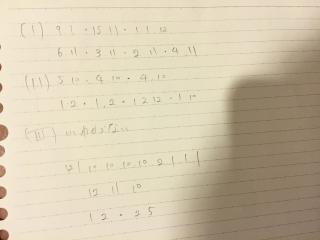 (I) 9 1 • 15 11 • 1 1 12
6 11 • 3 11 • 2 11 • 4 11
(II) 5 10 • 4 10 • 4 10
1 2 • 1 2 • 1 2 12 • 1 10
(III)
12 1 10 10 10 10 2 1 1 1
12 11 10
1 2 • 2 5